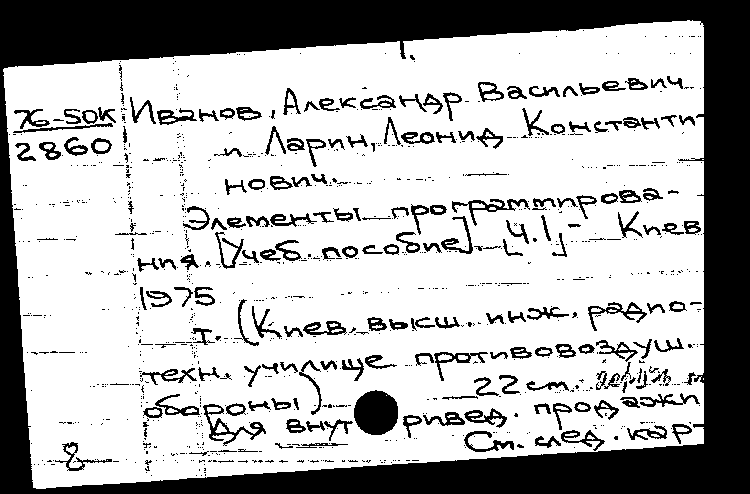 1.
76-50К Иванов, Александр Васильевич
2860 и Ларин, Леонид Константи-
нович.
Элементы программирова-
ния. [Учеб. пособие]. Ч. [1], - Киев
1975
т. (Киев. высш. инж. радио-
техн. училище противовоздуш.
обороны). 22 см.
Для внут ривед. продажи
8 См. след. кар-